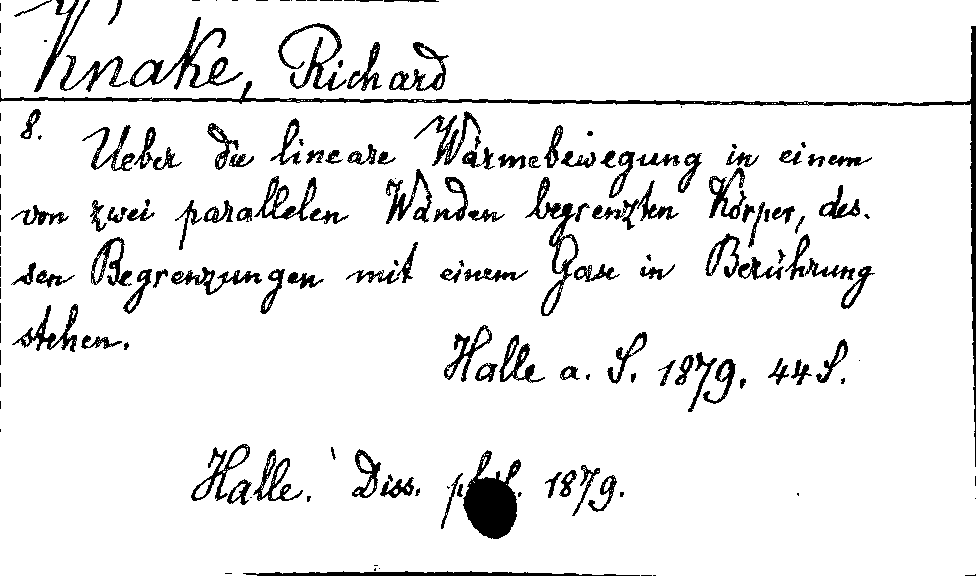 Knake, Richard
8.
Ueber die lineare Wärmebewegung in einem
von zwei parallelen Wänden begrenzten Körper, des-
sen Begrenzungen mit einem Gase in Berührung
stehen.
Halle a. S. 1879. 44 S.
Halle. Diss. phil. 1879.